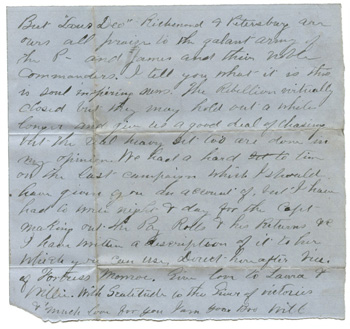 But "Laus Deo" Richmond & Petersburg are
ours all praise to the galant army of
the P— and James and their noble
Commanders. I tell you what it is this
is soul inspiring news. The Rebellion virtually
closed but they may hold out a while
longer and give us a good deal of chasing
but the heavy set too are done in
my opinion We had a hard time
on the last campaign which I should
have given you an account of, but I have
had to work night & day for the Capt
making out the Pay Rolls & his Returns &
I have written a description of it to her
which you can use, direct hereafter
of Fortress Monroe. Give love to Laura &
Willie. With Gratitude to the Giver of victories
& much love for you I am Your Bro Will